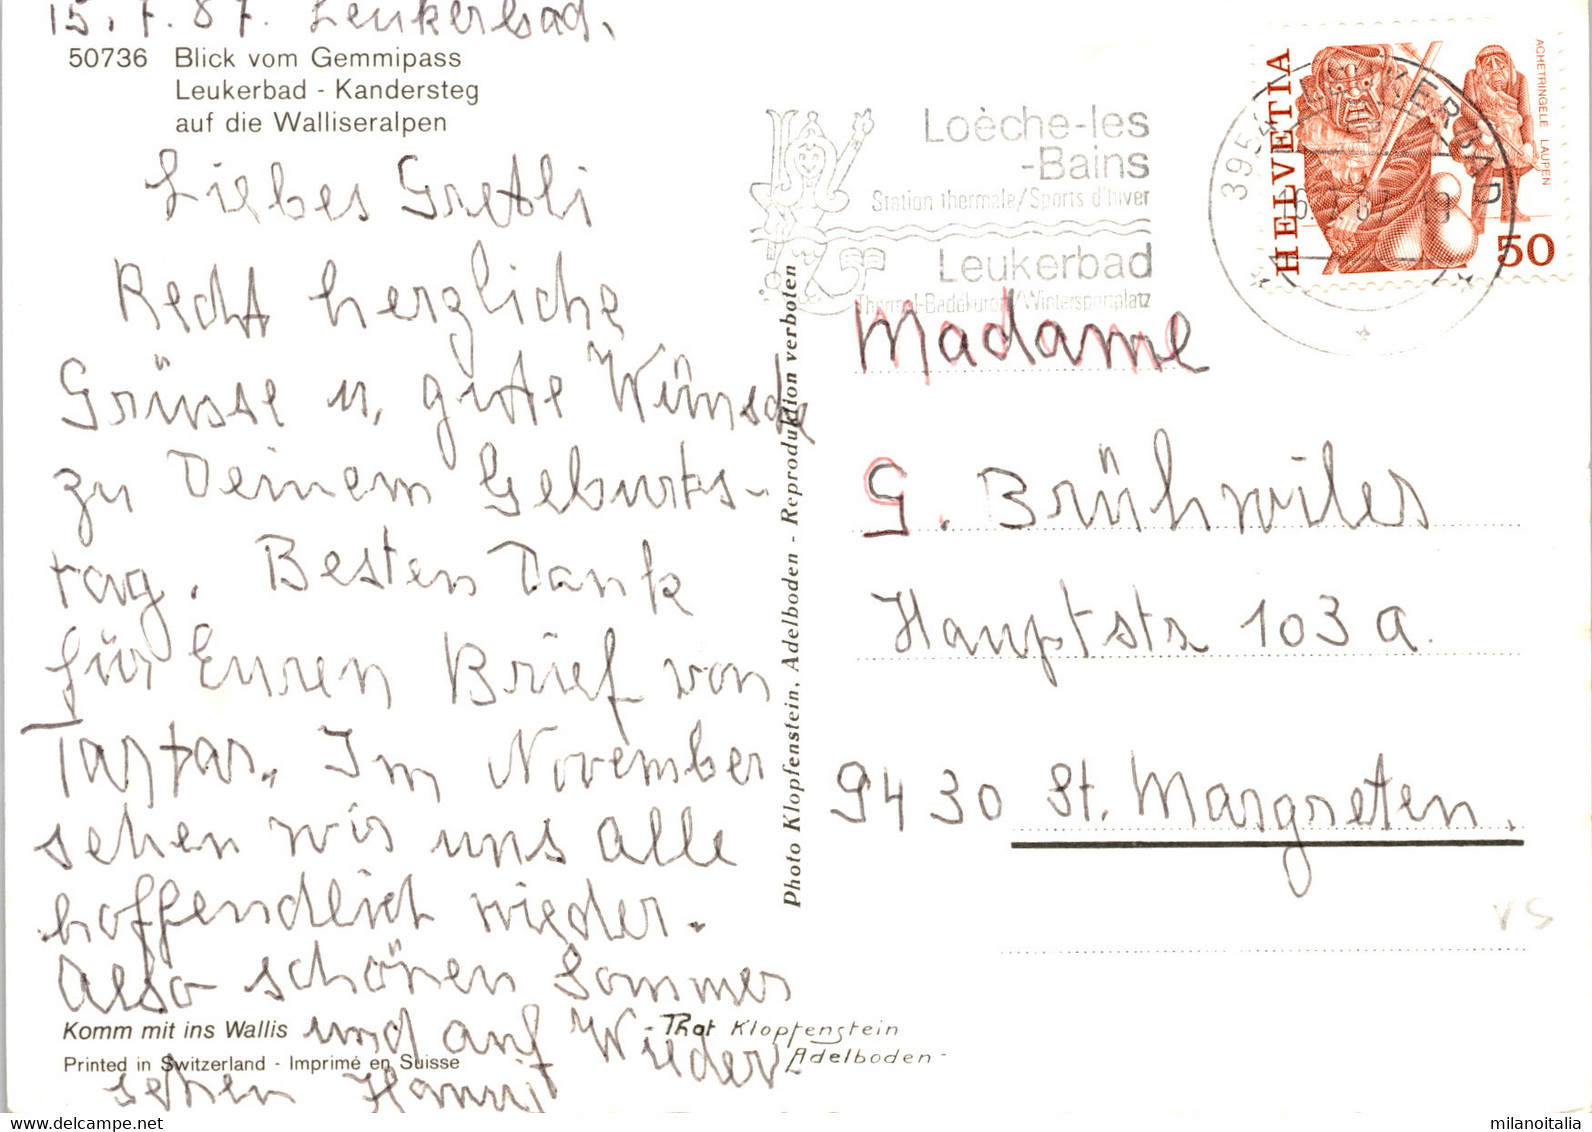 15. 7. 87. Leukerbad.
50736 Blick vom Gemmipass
Leukerbad - Kandersteg
auf die Walliseralpen
Liebes Gretli
Recht herzliche
Grüsse u. gute Wünsche
zu Deinem Geburts-
tag. Besten Dank
für Euren Brief von
Im November
sehen wir uns alle
hoffendlich wieder.
Also schönen Sommer
und auf Wieder
sehen
Komm mit ins Wallis
Printed in Switzerland - Imprimé en Suisse
Phot Klopfenstein
Adelboden -
Photo Klopfenstein, Adelboden - Reproduktion verboten
Loèche-les
-Bains
Station thermale/Sports d'hiver
Leukerbad
Thermal-Badekurort/Wintersportplatz
3954 LEUKERBAD
HELVETIA
ACHETRINGELE LAUPEN
50
Madame
G. Brühwiler
Hauptstr 103 a.
9430 St. Margreten.
VS
milanoitalia